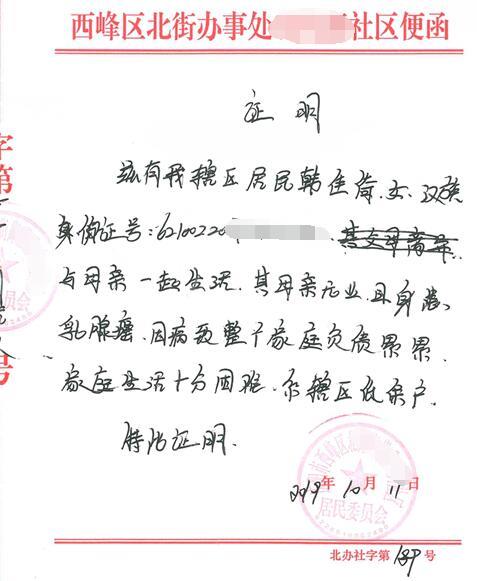 西峰区北街办事处 社区便函
证明
兹有我辖区居民韩佳 ,女,汉族
身份证号:62100220 其父母离异
与母亲一起生活.其母亲无业,且身患
乳腺瘤.因病致整个家庭负债累累.
家庭生活十分困难.系辖区低保户.
特此证明.
西峰区北
居民委员会
2019年10月11日
北办社字第189号
字第
号